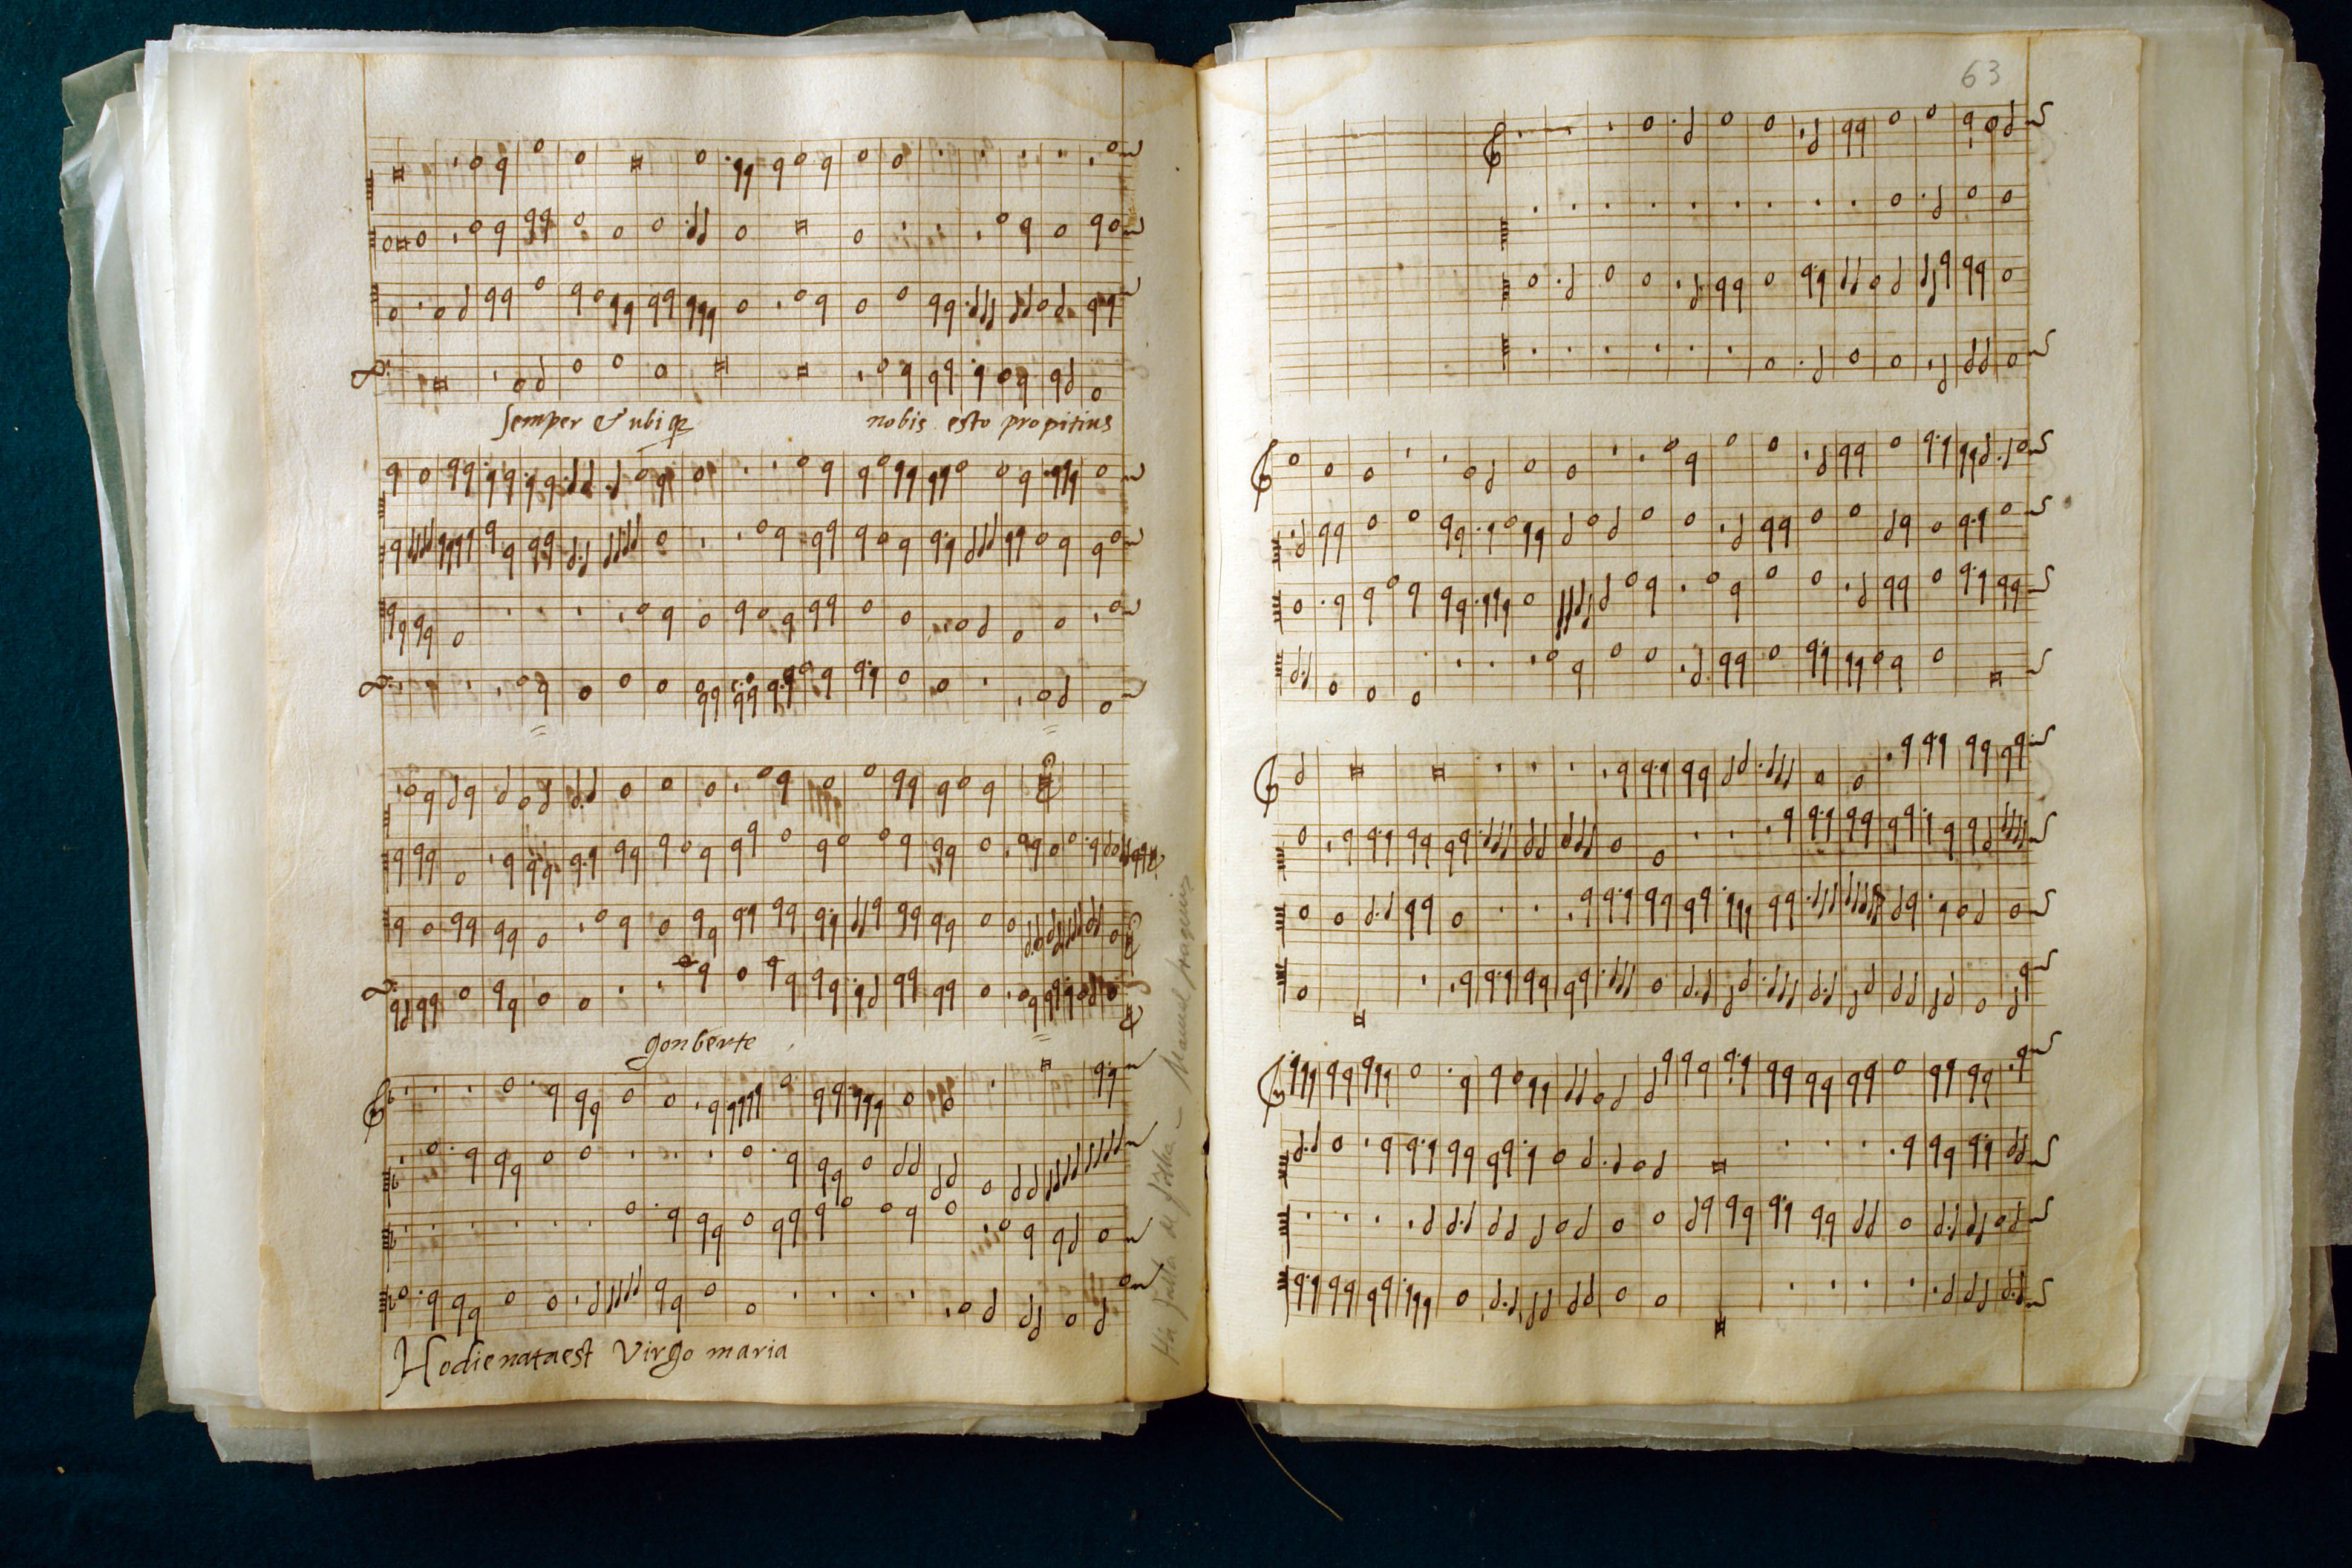 semper & ubiq
nobis esto propitius
gonberte
Hodie nata est Virgo maria
Há falta de folha — Manuel Joaquim
63